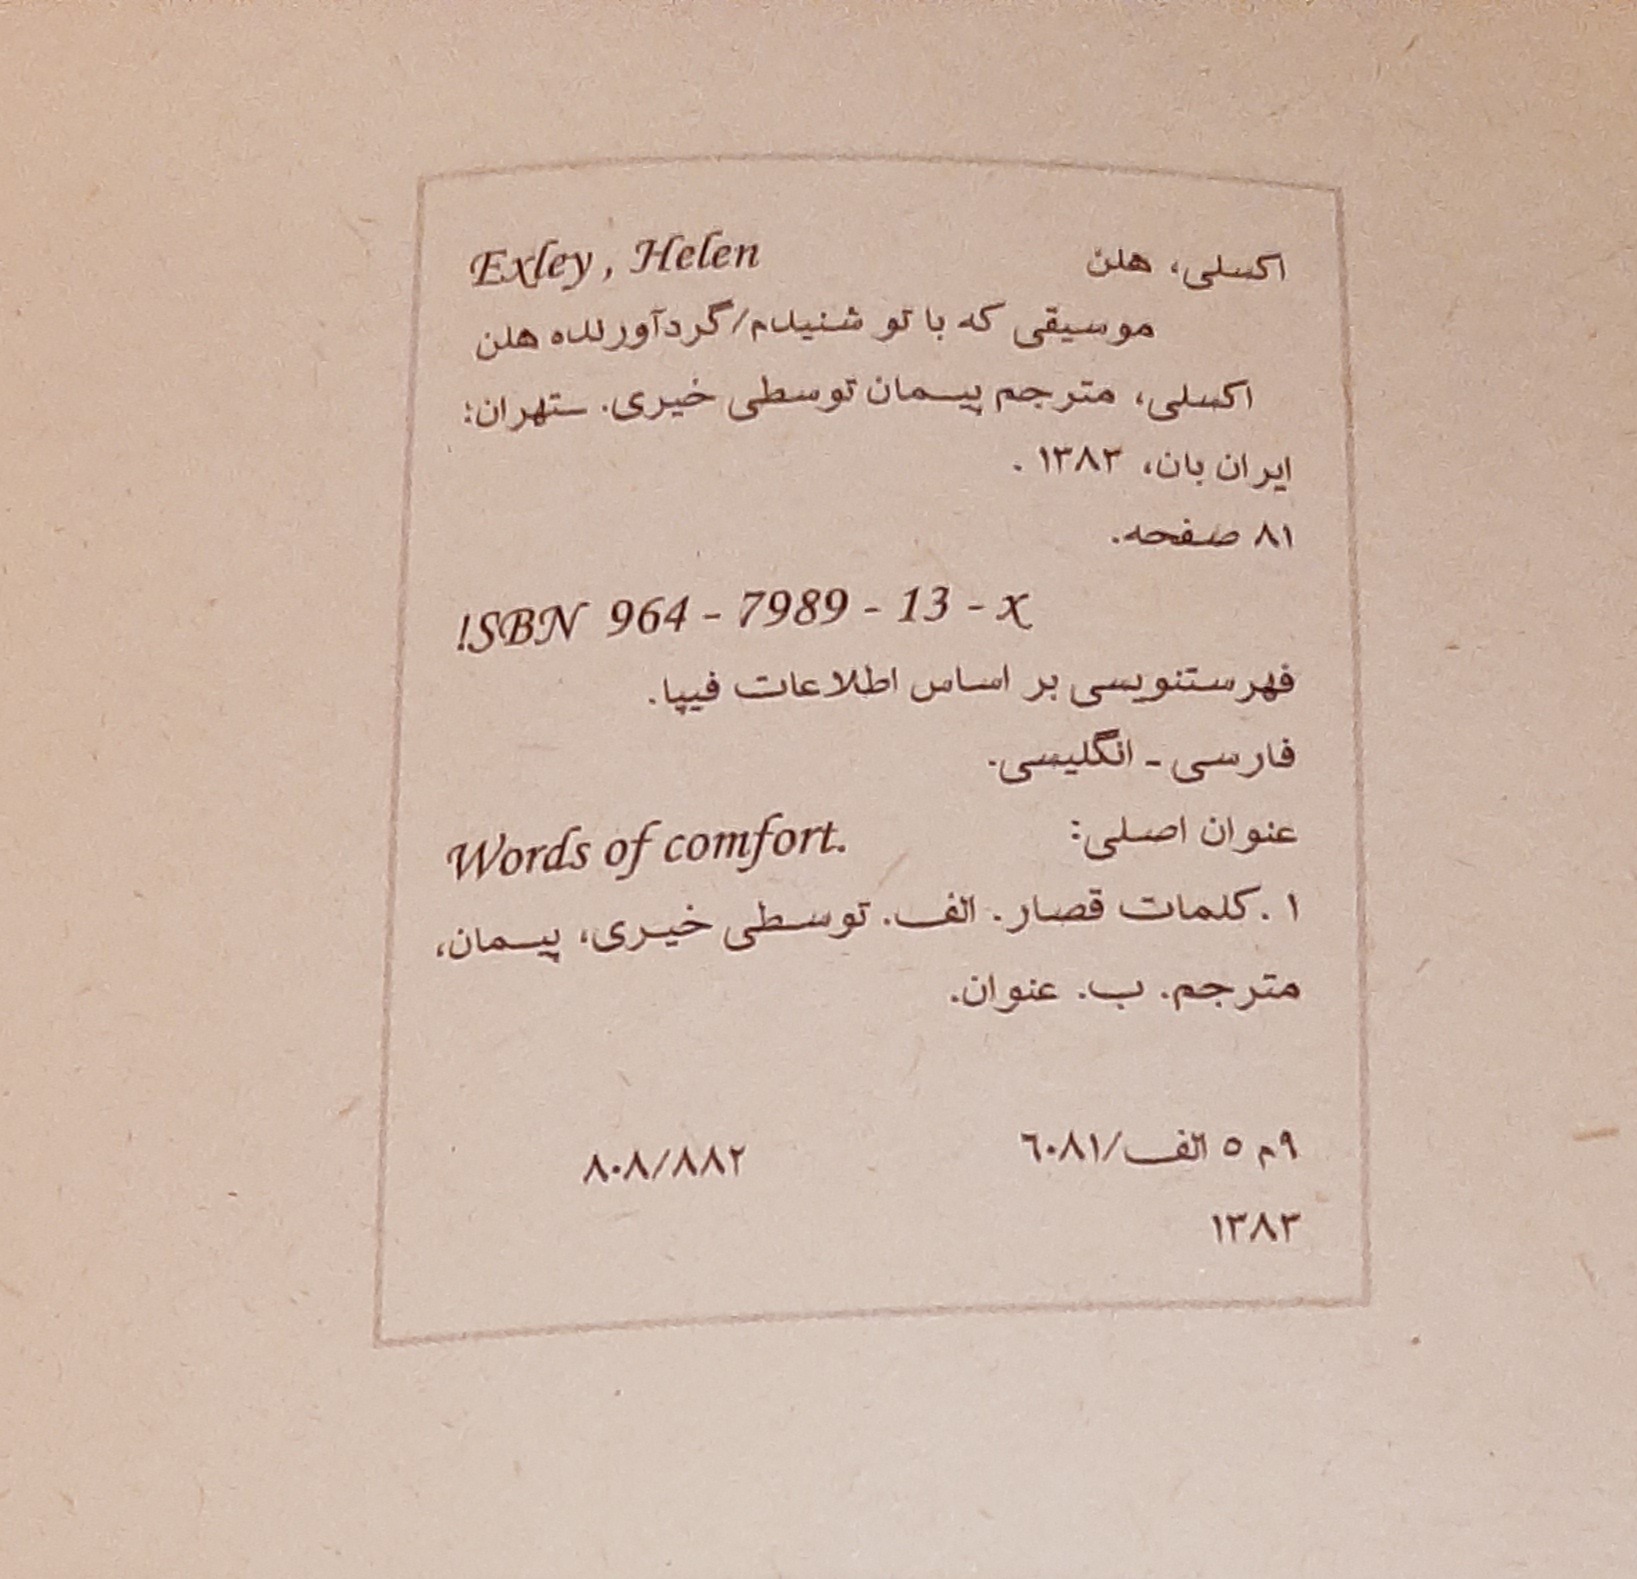 اکسلی، هلن Exley, Helen
موسیقی که با تو شنیدم/گردآورنده هلن
اکسلی، مترجم پیمان توسطی خیری. ـتهران:
ایران بان، ۱۳۸۳ .
۸۱ صفحه.
!SBN 964 - 7989 - 13 - x
فهرستنویسی بر اساس اطلاعات فیپا.
فارسی ـ انگلیسی.
عنوان اصلی: Words of comfort.
۱ .کلمات قصار. الف. توسطی خیری، پیمان،
مترجم. ب. عنوان.
۹م ۵ الف/۶۰۸۱ ۸۰۸/۸۸۲
۱۳۸۳